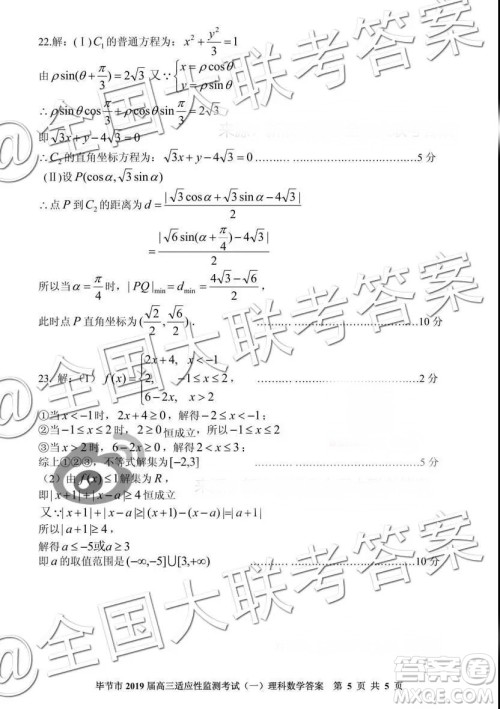 22.解：(Ⅰ)C₁的普通方程为：x²+y²/3=1
由ρsin(θ+π/3)=2√3 又∵{x=ρcosθ
y=ρsinθ
∴ρsinθcosπ/3+ρcosθsinπ/3=2√3
即√3x+y-4√3=0
∴C₂的直角坐标方程为：√3x+y-4√3=0 ……………………5分
(Ⅱ)设P(cosα,√3sinα)
∴点P到C₂的距离为d=|√3cosα+√3sinα-4√3|/2
=|√6sin(α+π/4)-4√3|/2
所以当α=π/4时，|PQ|min=dmin=(4√3-√6)/2，
此时点P直角坐标为(√2/2,√6/2). ……………………10分
23.解：(1) f(x)={2x+4, x<-1
2, -1≤x≤2 ……………………2分
6-2x, x>2
①当x<-1时，2x+4≥0，解得-2≤x<-1；
②当-1≤x≤2时，2≥0恒成立，
③当x>2时，6-2x≥0，解得2<x≤3；
综上①②③，不等式解集为[-2,3] ……………………5分
(2)由f(x)≤1解集为R，
即|x+1|+|x-a|≥4恒成立
又∵|x+1|+|x-a|≥|(x+1)-(x-a)|=|a+1|
所以|a+1|≥4，
解得a≤-5或a≥3
即a的取值范围是(-∞,-5]∪[3,+∞) ……………………10分
毕节市2019届高三适应性监测考试（一）理科数学答案 第5页 共5页
@全国大联考答案
@全国大联考答案
@全国大联考答案